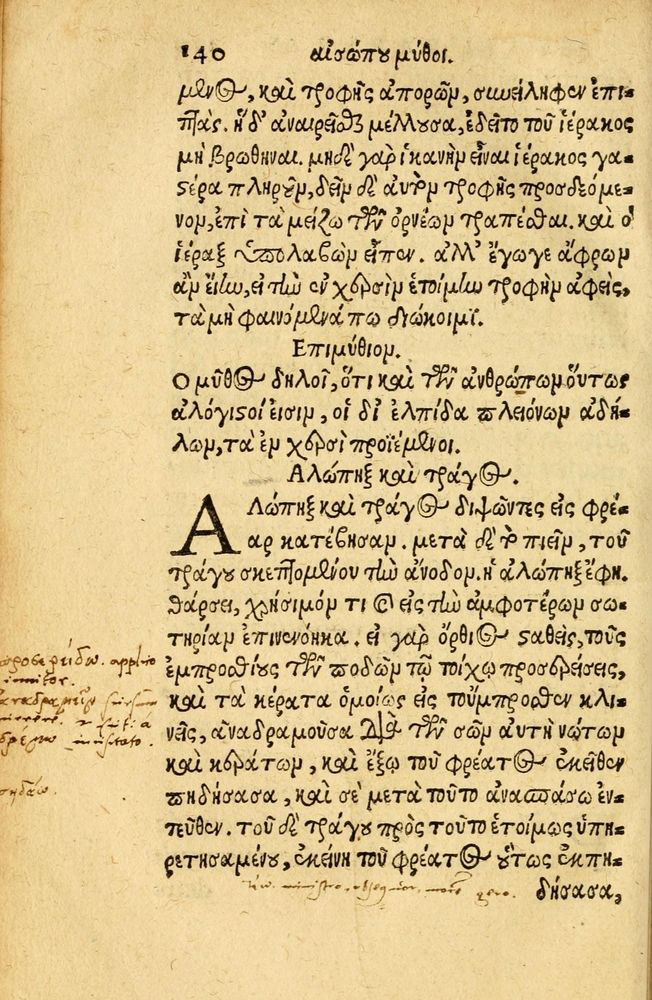 140 αἰσώπου μῦθοι.
μενος, καὶ τροφῆς ἀπορῶν, συνείληφεν ἐπι-
πτάς. ἡ δ' ἀναιρεῖσθαι μέλλουσα, ἐδεῖτο τοῦ ἱέρακος
μὴ βρωθῆναι. μηδὲ γὰρ ἱκανὴν εἶναι ἱέρακος γα-
στέρα πληροῦν, δεῖν δὲ αὐτὸν τροφῆς προσδεόμε-
νον, ἐπὶ τὰ μείζω τῶν ὀρνέων τραπέσθαι. καὶ ὁ
ἱέραξ ὑπολαβὼν εἶπεν. ἀλλ' ἔγωγε ἄφρων
ἂν εἴην, εἰ τὴν ἐν χερσὶν ἑτοίμην τροφὴν ἀφεὶς,
τὰ μὴ φαινόμενά πω διώκοιμι.
Επιμύθιον.
Ο μῦθος δηλοῖ, ὅτι καὶ τῶν ἀνθρώπων οὕτως
ἀλόγιστοί εἰσιν, οἱ δι' ἐλπίδα πλειόνων ἀδή-
λων, τὰ ἐν χερσὶ προϊέμενοι.
Αλώπηξ καὶ τράγος.
Αλώπηξ καὶ τράγος διψῶντες εἰς φρέ-
αρ κατέβησαν. μετὰ δὲ τὸ πιεῖν, τοῦ
τράγου σκεπτομένου τὴν ἄνοδον. ἡ ἀλώπηξ ἔφη.
θάρσει, χρήσιμόν τι καὶ εἰς τὴν ἀμφοτέρων σω-
τηρίαν ἐπινενόηκα. εἰ γὰρ ὄρθιος σταθεὶς, τοὺς
ἐμπροσθίους τῶν ποδῶν τῷ τοίχῳ προσερείσεις,
καὶ τὰ κέρατα ὁμοίως εἰς τοὔμπροσθεν κλι-
νεῖς, ἀναδραμοῦσα διὰ τῶν σῶν αὐτὴ νώτων
καὶ κεράτων, καὶ ἔξω τοῦ φρέατος ἐκεῖθεν
πηδήσασα, καὶ σὲ μετὰ τοῦτο ἀνασπάσω ἐν-
τεῦθεν. τοῦ δὲ τράγου πρὸς τοῦτο ἑτοίμως ὑπη-
ρετησαμένου, ἐκείνη τοῦ φρέατος οὕτως ἐκπη-
δήσασα,
προσερείδω. applico
innitor.